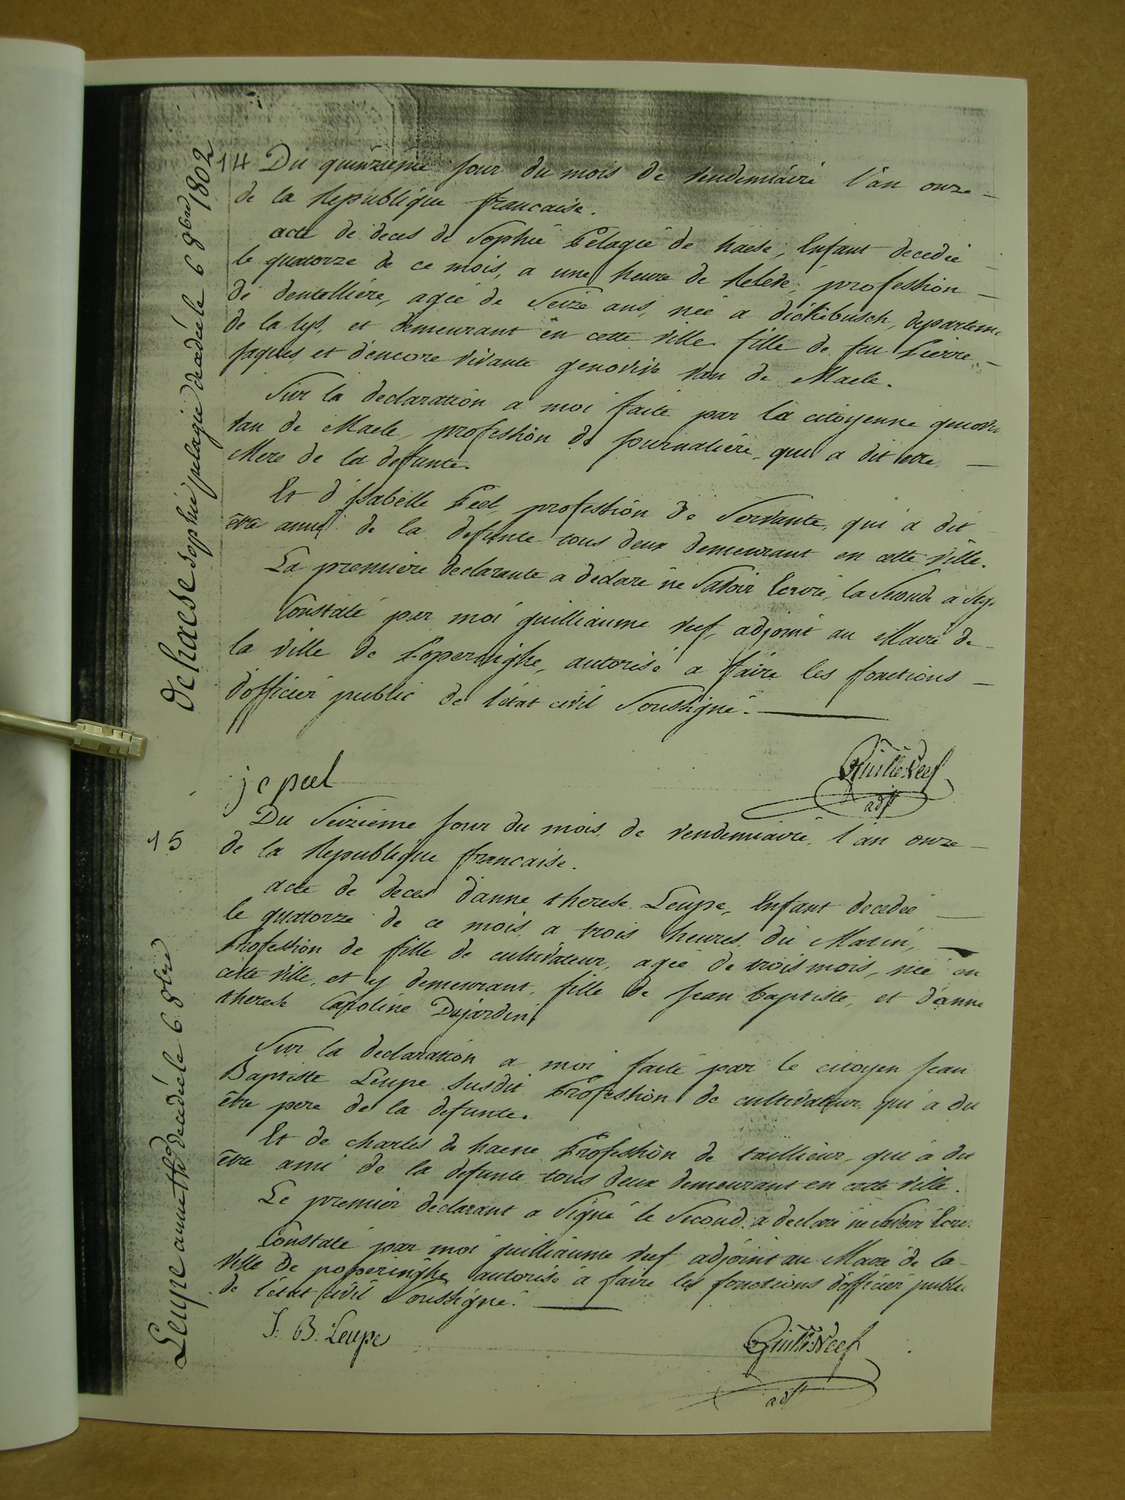 14 Du quinzieme jour du mois de vendemiaire l'an onze
de la Republique francaise.
acte de deces de Sophie Pelagie de haese, Enfant decedée
le quatorze de ce mois, a une heure de relevé, profession
de dentelliere, agée de Seize ans, née a dickebusch, departem.
de la lys, et demeurant en cette ville fille de feu Pierre
jaques et d'encore vivante genovive van de Maele.
Sur la declaration a moi faite par la citoyenne genov
van de Maele, profession de journaliere, qui a dit etre
Mere de la defunte.
Et d'Isabelle Peel profession de Servante, qui a dit
être amie de la defunte tous deux demeurant en cette ville.
La premiere declarante a déclaré ne Savoir Ecrire, la Seconde a sig.
Constaté par moi guilliaume neef, adjoint au Maire de
la ville de Poperinghe, autorisé a faire les fonctions
d'officier public de l'état civil Soussigné.
j c peel
Guille Neef
adjt
15 Du Seizieme jour du mois de vendemiaire, l'an onze
de la Republique francaise.
acte de deces d'anne therese Leupe, Enfant decedée
le quatorze de ce mois a trois heures du Matin,
Profession de fille de cultivateur, agée de trois mois, née en
cette ville, et y demeurant, fille de Jean baptiste, et d'anne
therese Caroline Dujardin
Sur la declaration a moi faite par le citoyen Jean
Baptiste Leupe susdit Profession de cultivateur qui a dit
être pere de la defunte.
Et de charles de haene Profession de taillieur, qui a dit
être ami de la defunte tous deux demeurant en cette ville.
Le premier declarant a Signé le Second a declaré ne Savoir Ecri.
Constaté par moi guilliaume neef adjoint au Maire de la
ville de poperinghe autorisé a faire les fonctions d'officier public
de l'état civil Soussigné.
J. B. Leupe
Guille Neef
adjt
De haese sophie pelagie decedée le 6 8bre 1802
Leupe anne the decedée le 6 8bre